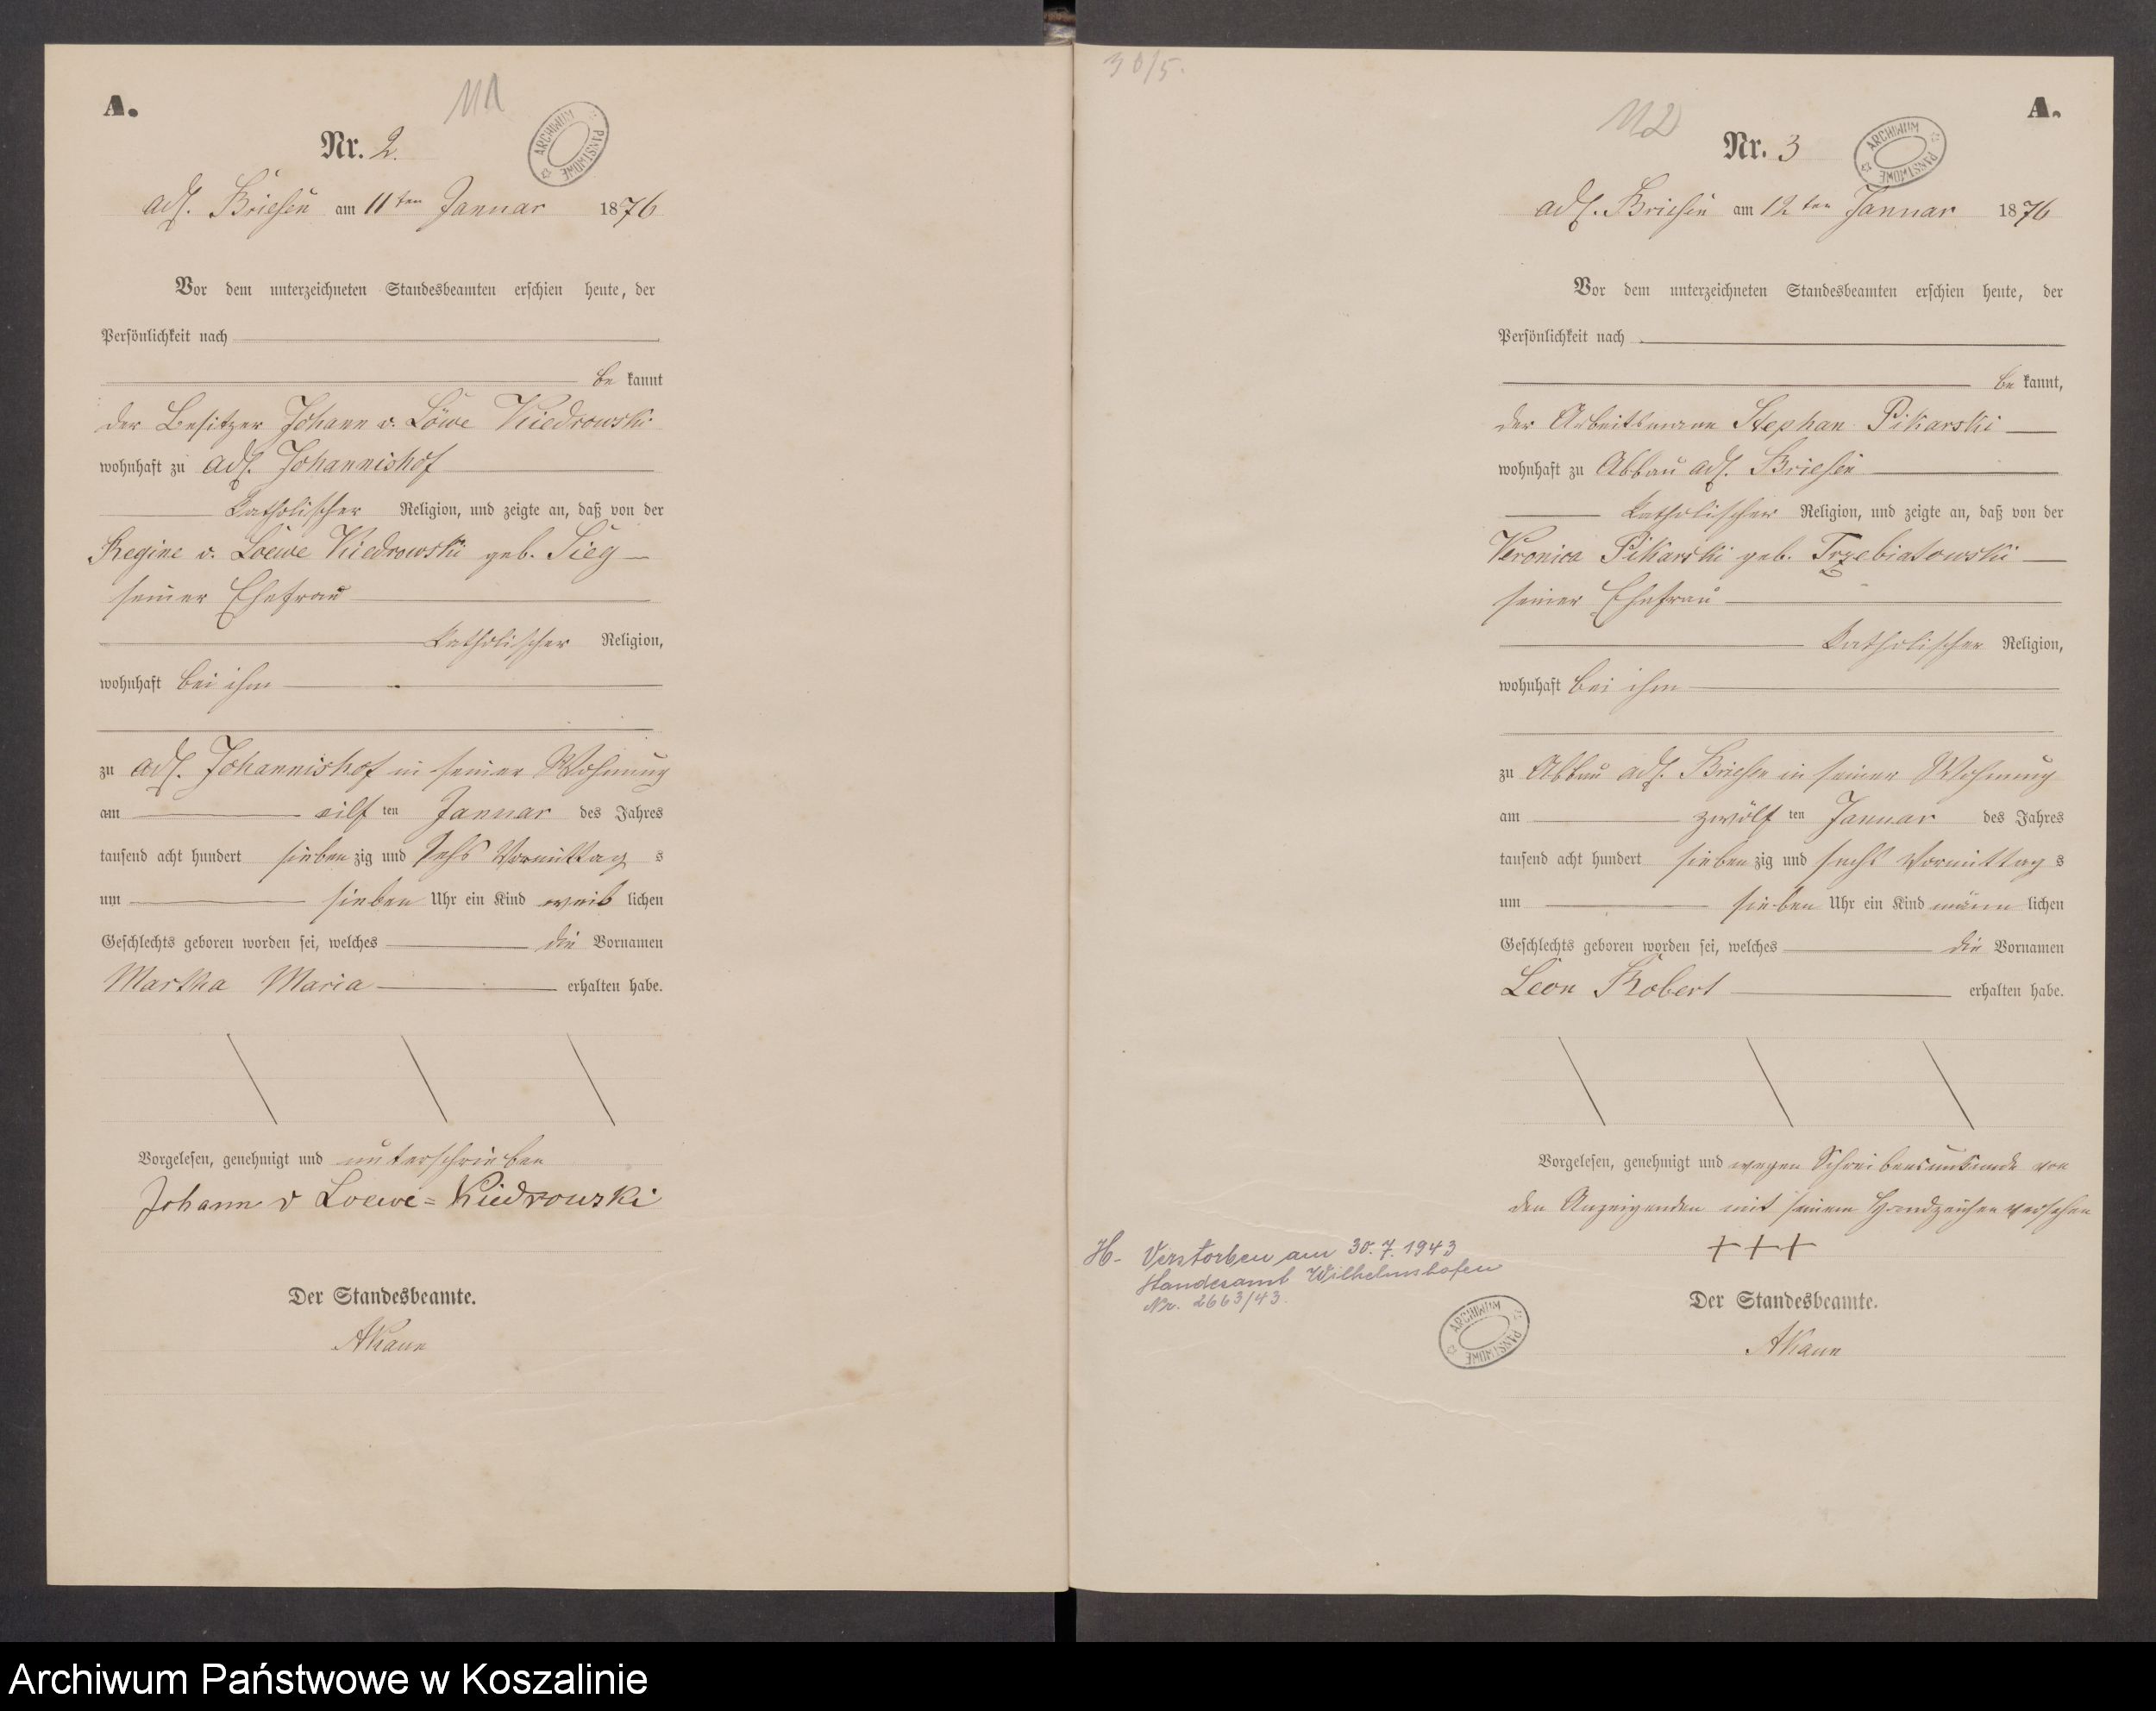 A.
111
Nr. 2.
ARCHIWUM PAŃSTWOWE
adl. Briesen am 11ten Januar 1876
Vor dem unterzeichneten Standesbeamten erschien heute, der
Persönlichkeit nach
be kannt
der Besitzer Johann v. Löwe Kiedrowski
wohnhaft zu adl. Johannishof
katholischer Religion, und zeigte an, daß von der
Regine v. Loewe Kiedrowski geb. Sieg
seiner Ehefrau
katholischer Religion,
wohnhaft bei ihm
zu adl. Johannishof in seiner Wohnung
am eilf ten Januar des Jahres
tausend acht hundert sieben zig und sechs Vormittag s
um sieben Uhr ein Kind weib lichen
Geschlechts geboren worden sei, welches die Vornamen
Martha Maria erhalten habe.
Vorgelesen, genehmigt und unterschrieben
Johann v Loewe=Kiedrowski
Der Standesbeamte.
AKann
30/5.
A.
112
Nr. 3
ARCHIWUM PAŃSTWOWE
adl. Briesen am 12ten Januar 1876
Vor dem unterzeichneten Standesbeamten erschien heute, der
Persönlichkeit nach
be kannt,
der Arbeitsmann Stephan Pikarski
wohnhaft zu Abbau adl. Briesen
katholischer Religion, und zeigte an, daß von der
Veronica Pikarski geb. Trzebiatowski
seiner Ehefrau
katholischer Religion,
wohnhaft bei ihm
zu Abbau adl. Briesen in seiner Wohnung
am zwölf ten Januar des Jahres
tausend acht hundert sieben zig und sechs Vormittag s
um sieben Uhr ein Kind männ lichen
Geschlechts geboren worden sei, welches die Vornamen
Leon Robert erhalten habe.
Vorgelesen, genehmigt und wegen Schreibensunkunde von
den Anzeigenden mit seinem Handzeichen versehen
+++
H- Verstorben am 30.7.1943
Standesamt Wilhelmshafen
Nr. 2663/43.
ARCHIWUM PAŃSTWOWE
Der Standesbeamte.
AKann
Archiwum Państwowe w Koszalinie